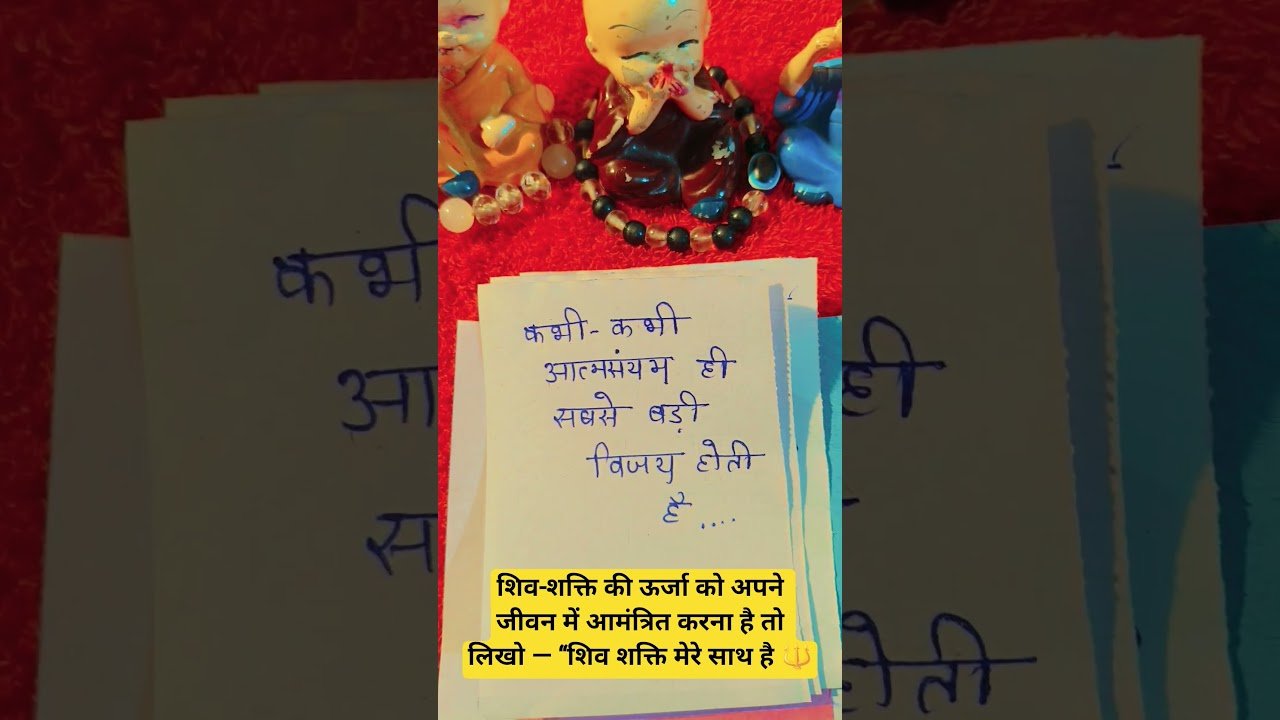 कभी-कभी
आत्मसंयम ही
सबसे बड़ी
विजय होती
है ....
शिव-शक्ति की ऊर्जा को अपने
जीवन में आमंत्रित करना है तो
लिखो – “शिव शक्ति मेरे साथ है 🔱